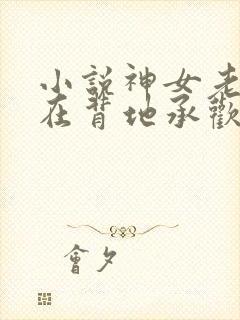 小說神女老
在背地承歡
會夕